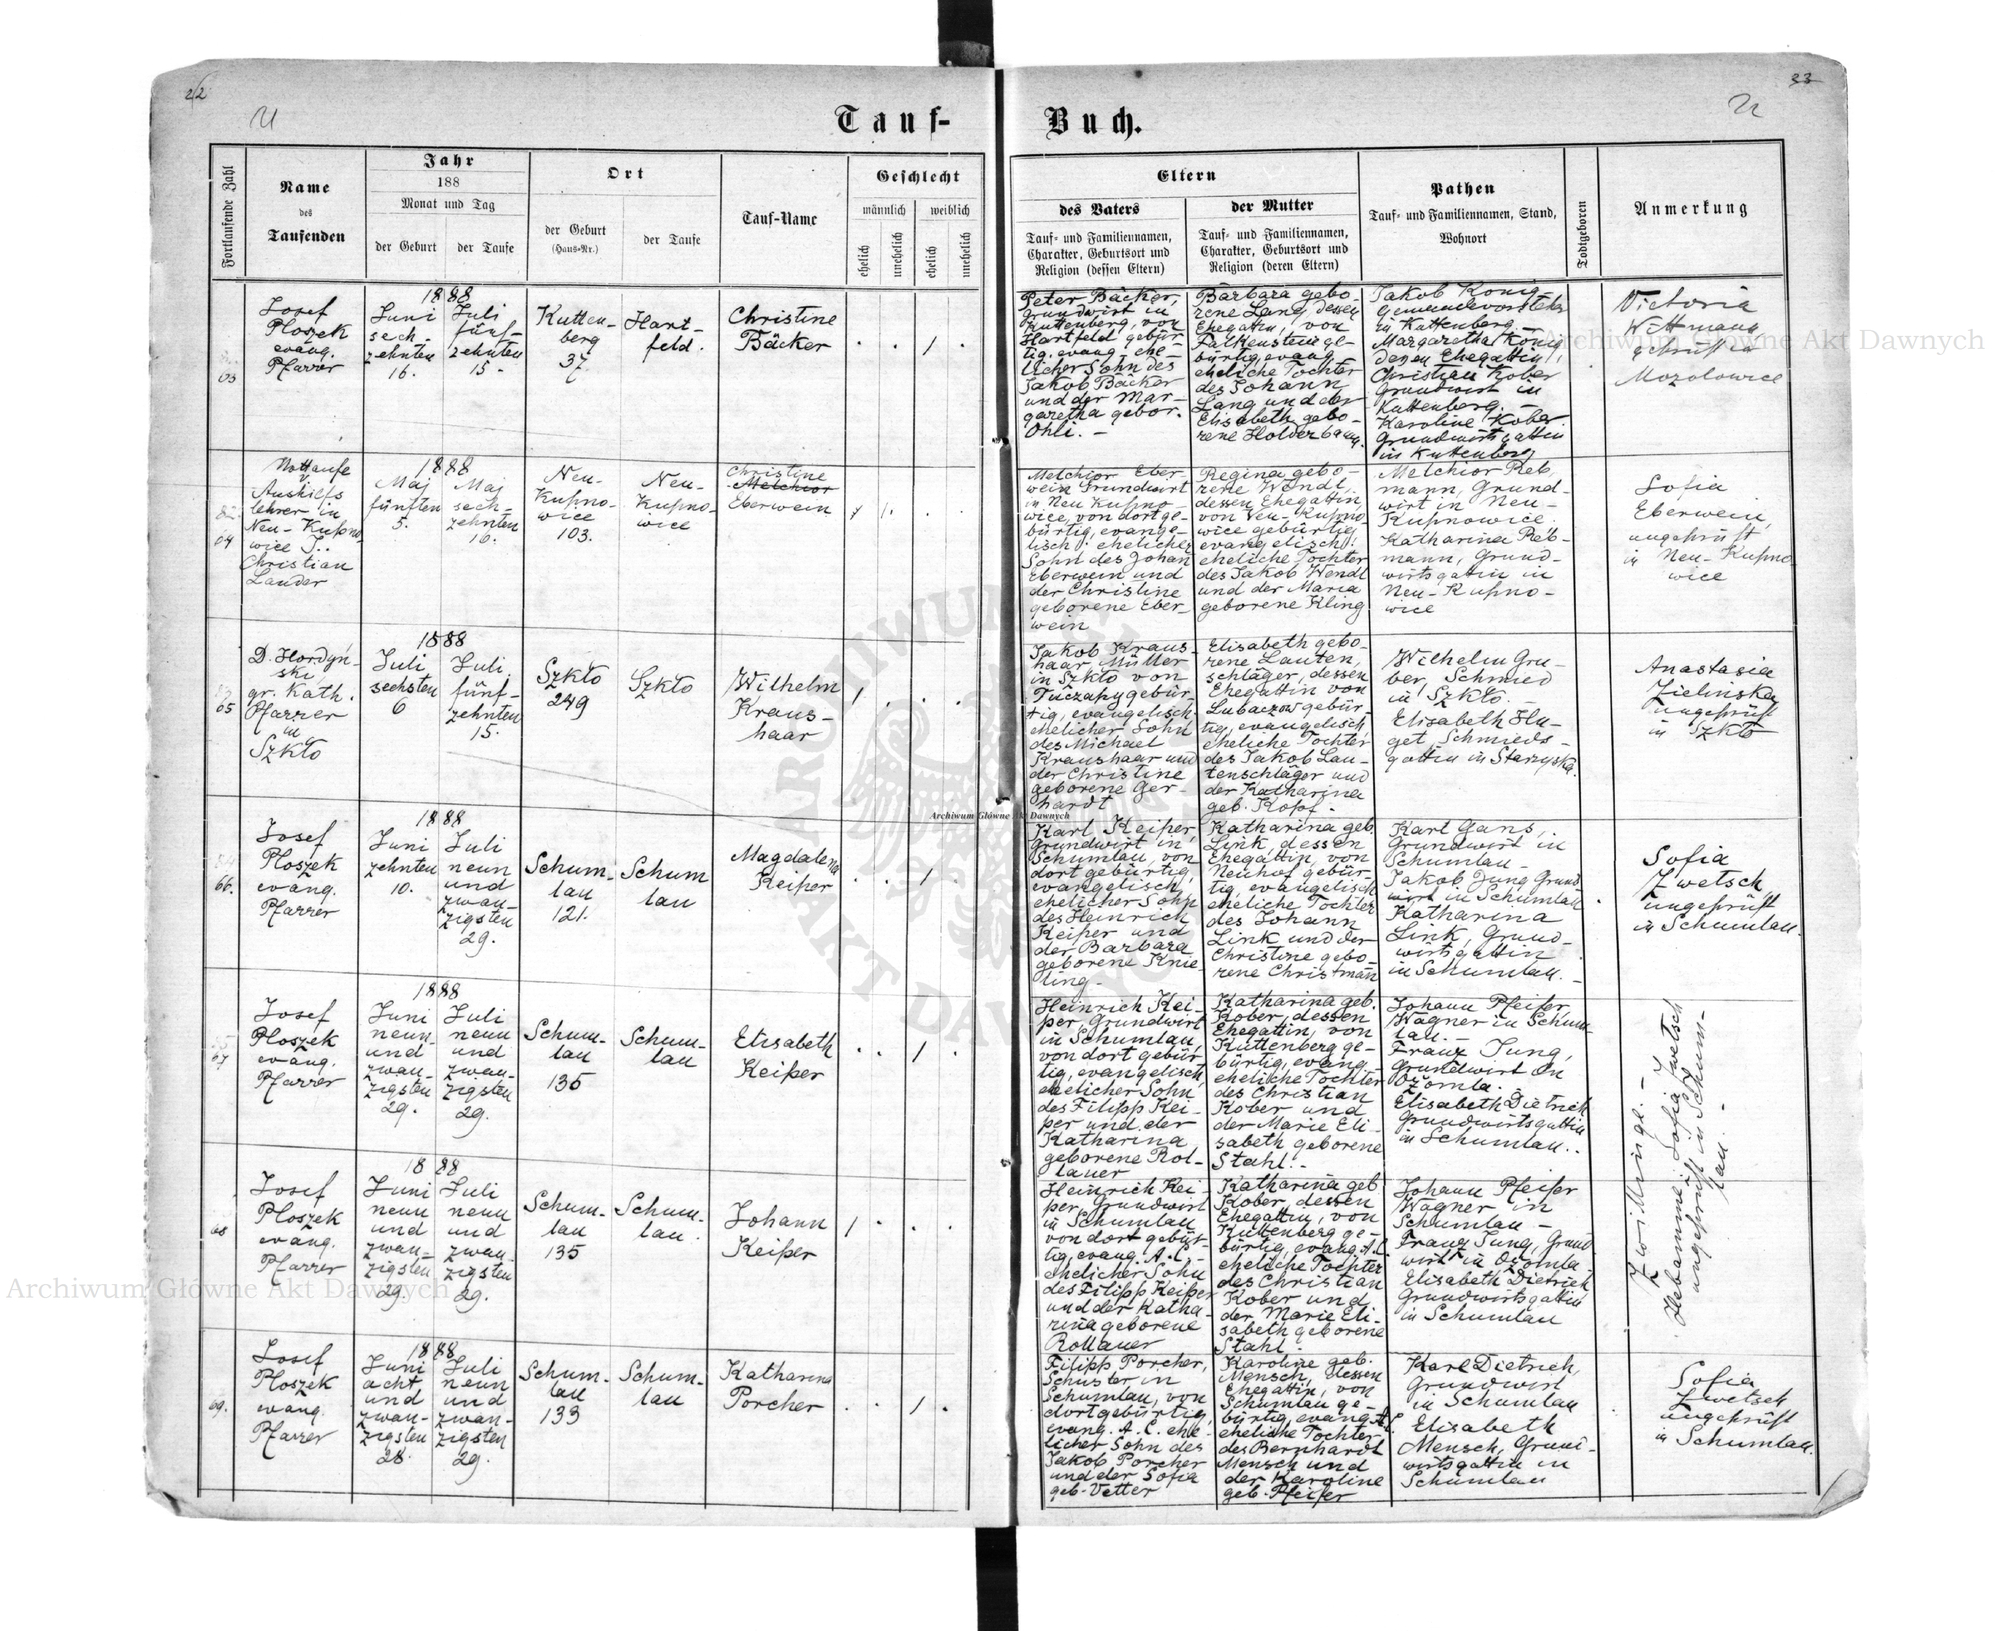 22
33
Tauf-
Buch.
Fortlaufende Zahl
Name
des
Taufenden
Jahr
188
Monat und Tag
der Geburt
der Taufe
Ort
der Geburt
(Haus=Nr.)
der Taufe
Tauf=Name
Geschlecht
männlich
weiblich
ehelich
unehelich
ehelich
unehelich
Eltern
des Vaters
Tauf= und Familiennamen,
Charakter, Geburtsort und
Religion (dessen Eltern)
der Mutter
Tauf= und Familiennamen,
Charakter, Geburtsort und
Religion (deren Eltern)
Pathen
Tauf= und Familiennamen, Stand,
Wohnort
Todtgeboren
Anmerkung
63
Josef
Ploszek
evang.
Pfarrer
1888
Juni
sech-
zehnten
16.
Juli
fünf-
zehnten
15.
Kutten-
berg
37.
Hart-
feld.
Christine
Bäcker
Peter Bäcker,
Grundwirt in
Kuttenberg, von
Hartfeld gebür-
tig, evang. ehe-
licher Sohn des
Jakob Bäcker
und der Mar-
garetha gebor.
Ohli. -
Barbara gebo-
rene Lang, dessen
Ehegattin, von
Falkenstein ge-
bürtig, evang.
eheliche Tochter
des Johann
Lang und der
Elisabeth gebo-
rene Holderbaum.
Jakob König
Gemeindevorsteher
in Kuttenberg. -
Margaretha König
deren Ehegattin,
Christian Kober
Grundwirt in
Kuttenberg. -
Karoline Kober
Grundwirtsgattin
in Kuttenberg
Victoria
Wittmann
geprüft in
Mozolowice
64
Nottaufe
Aushilfs
lehrer in
Neu-Kupno-
wice J..
Christian
Lauder
1888
Mai
fünften
5.
Mai
sech-
zehnten
16.
Neu-
Kupno-
wice
103.
Neu-
Kupno-
wice
Christine
Melchior
Eberwein
Melchior Eber-
wein Grundwirt
in Neu Kupno-
wice, von dort ge-
bürtig, evange-
lisch ehelicher
Sohn des Johan
Eberwein und
der Christine
geborene Eber-
wein
Regina gebo-
rene Wendl,
dessen Ehegattin
von Neu-Kupno-
wice gebürtig,
evangelisch,
eheliche Tochter
des Jakob Wendl
und der Maria
geborene Kling
Melchior Reb
mann, Grund-
wirt in Neu-
Kupnowice.
Katharina Reb-
mann, Grund-
wirtsgattin in
Neu-Kupno-
wice
Sofia
Eberwein,
ungeprüft
in Neu-Kupno
wice
65
D. Hordyń-
ski
gr. Kath.
Pfarrer
in
Szkło
1888
Juli
sechsten
6
Juli
fünf-
zehnten
15.
Szkło
249
Szkło
Wilhelm
Kraus-
haar
Jakob Kraus-
haar, Müller
in Szkło von
Tuczapy gebür-
tig, evangelisch.
ehelicher Sohn
des Michael
Kraushaar und
der Christine
geborene Ger-
hardt
Elisabeth gebo-
rene Lauten,
schläger, dessen
Ehegattin von
Lubaczow gebür-
tig, evangelisch,
eheliche Tochter
des Jakob Lau-
tenschläger und
der Katharina
geb. Kopf.
Wilhelm Gru-
ber, Schmied
in Szkło. -
Elisabeth Hu-
get, Schmieds-
gattin in Starzyska.
Anastasia
Zielinska
ungeprüft
in Szkło
66.
Josef
Ploszek
evang.
Pfarrer
1888
Juni
zehnten
10.
Juli
neun
und
zwan-
zigsten
29.
Schum-
lau
121.
Schum
lau
Magdalena
Keiper
Karl Keiper,
Grundwirt in
Schumlau, von
dort gebürtig,
evangelisch,
ehelicher Sohn
des Heinrich
Keiper und
der Barbara
geborene Knie-
ling-
Katharina geb.
Link, dessen
Ehegattin, von
Neuhof gebür-
tig, evangelisch
eheliche Tochter
des Johann
Link und der
Christine gebo-
rene Christmann
Karl Gans,
Grundwirt in
Schumlau-
Jakob Jung Grund-
wirt in Schumlau
Katharina
Link, Grund-
wirtsgattin
in Schumlau. -
Sofia
Zwetsch,
ungeprüft
in Schumlau.
67
Josef
Ploszek
evang.
Pfarrer
1888
Juni
neun-
und
zwan-
zigsten
29.
Juli
neun
und
zwan-
zigsten
29.
Schum-
lau
135
Schum-
lau
Elisabeth
Keiper
Heinrich Kei-
per, Grundwirt
in Schumlau,
von dort gebür
tig, evangelisch,
ehelicher Sohn
des Filipp Kei-
per und der
Katharina
geborene Rol-
lauer
Katharina geb.
Kober, dessen
Ehegattin, von
Kuttenberg ge-
bürtig, evang.
eheliche Tochter
des Christian
Kober und
der Marie Eli-
sabeth geborene
Stahl. -
Johann Pfeifer
Wagner in Schum-
lau. -
Franz Jung,
Grundwirt in
Ożomla. -
Elisabeth Dietrich
Grundwirtsgattin
in Schumlau..
Zwillinge. -
Hebamme: Sofia Zwetsch
ungeprüft in Schum-
lau. -
68
Josef
Ploszek
evang.
Pfarrer
1888
Juni
neun
und
zwan-
zigsten
29.
Juli
neun
und
zwan-
zigsten
29.
Schum-
lau
135
Schum-
lau.
Johann
Keiper
Heinrich Kei-
per, Grundwirt
in Schumlau
von dort gebür-
tig, evang. A. C.-
ehelicher Sohn
des Filipp Keiper
und der Katha-
rina geborene
Rollauer
Katharina geb
Kober, dessen
Ehegattin, von
Kuttenberg ge-
bürtig, evang. A. C.
eheliche Tochter
des Christian
Kober und
der Marie Eli-
sabeth geborene
Stahl.
Johann Pfeifer
Wagner in
Schumlau -
Franz Jung, Grund
wirt in Ożomla.
Elisabeth Dietrich,
Grundwirtsgattin
in Schumlau
69.
Josef
Ploszek
evang.
Pfarrer
1888
Juni
acht
und
zwan-
zigsten
28.
Juli
neun
und
zwan-
zigsten
29.
Schum-
lau
133
Schum-
lau
Katharina
Porcher
Filipp Porcher,
Schuster in
Schumlau, von
dort gebürtig,
evang. A. C. ehe-
licher Sohn des
Jakob Porcher
und der Sofia
geb. Vetter
Karoline geb.
Mensch, dessen
Ehegattin, von
Schumlau ge-
bürtig, evang. A. C.
eheliche Tochter
des Bernhardt
Mensch und
der Karoline
geb. Pfeifer
Karl Dietrich,
Grundwirt
in Schumlau
Elisabeth
Mensch, Grund-
wirtsgattin in
Schumlau
Sofia
Zwetsch
ungeprüft
in Schumlau.
Archiwum Główne Akt Dawnych
Archiwum Główne Akt Dawnych
Archiwum Główne Akt Dawnych